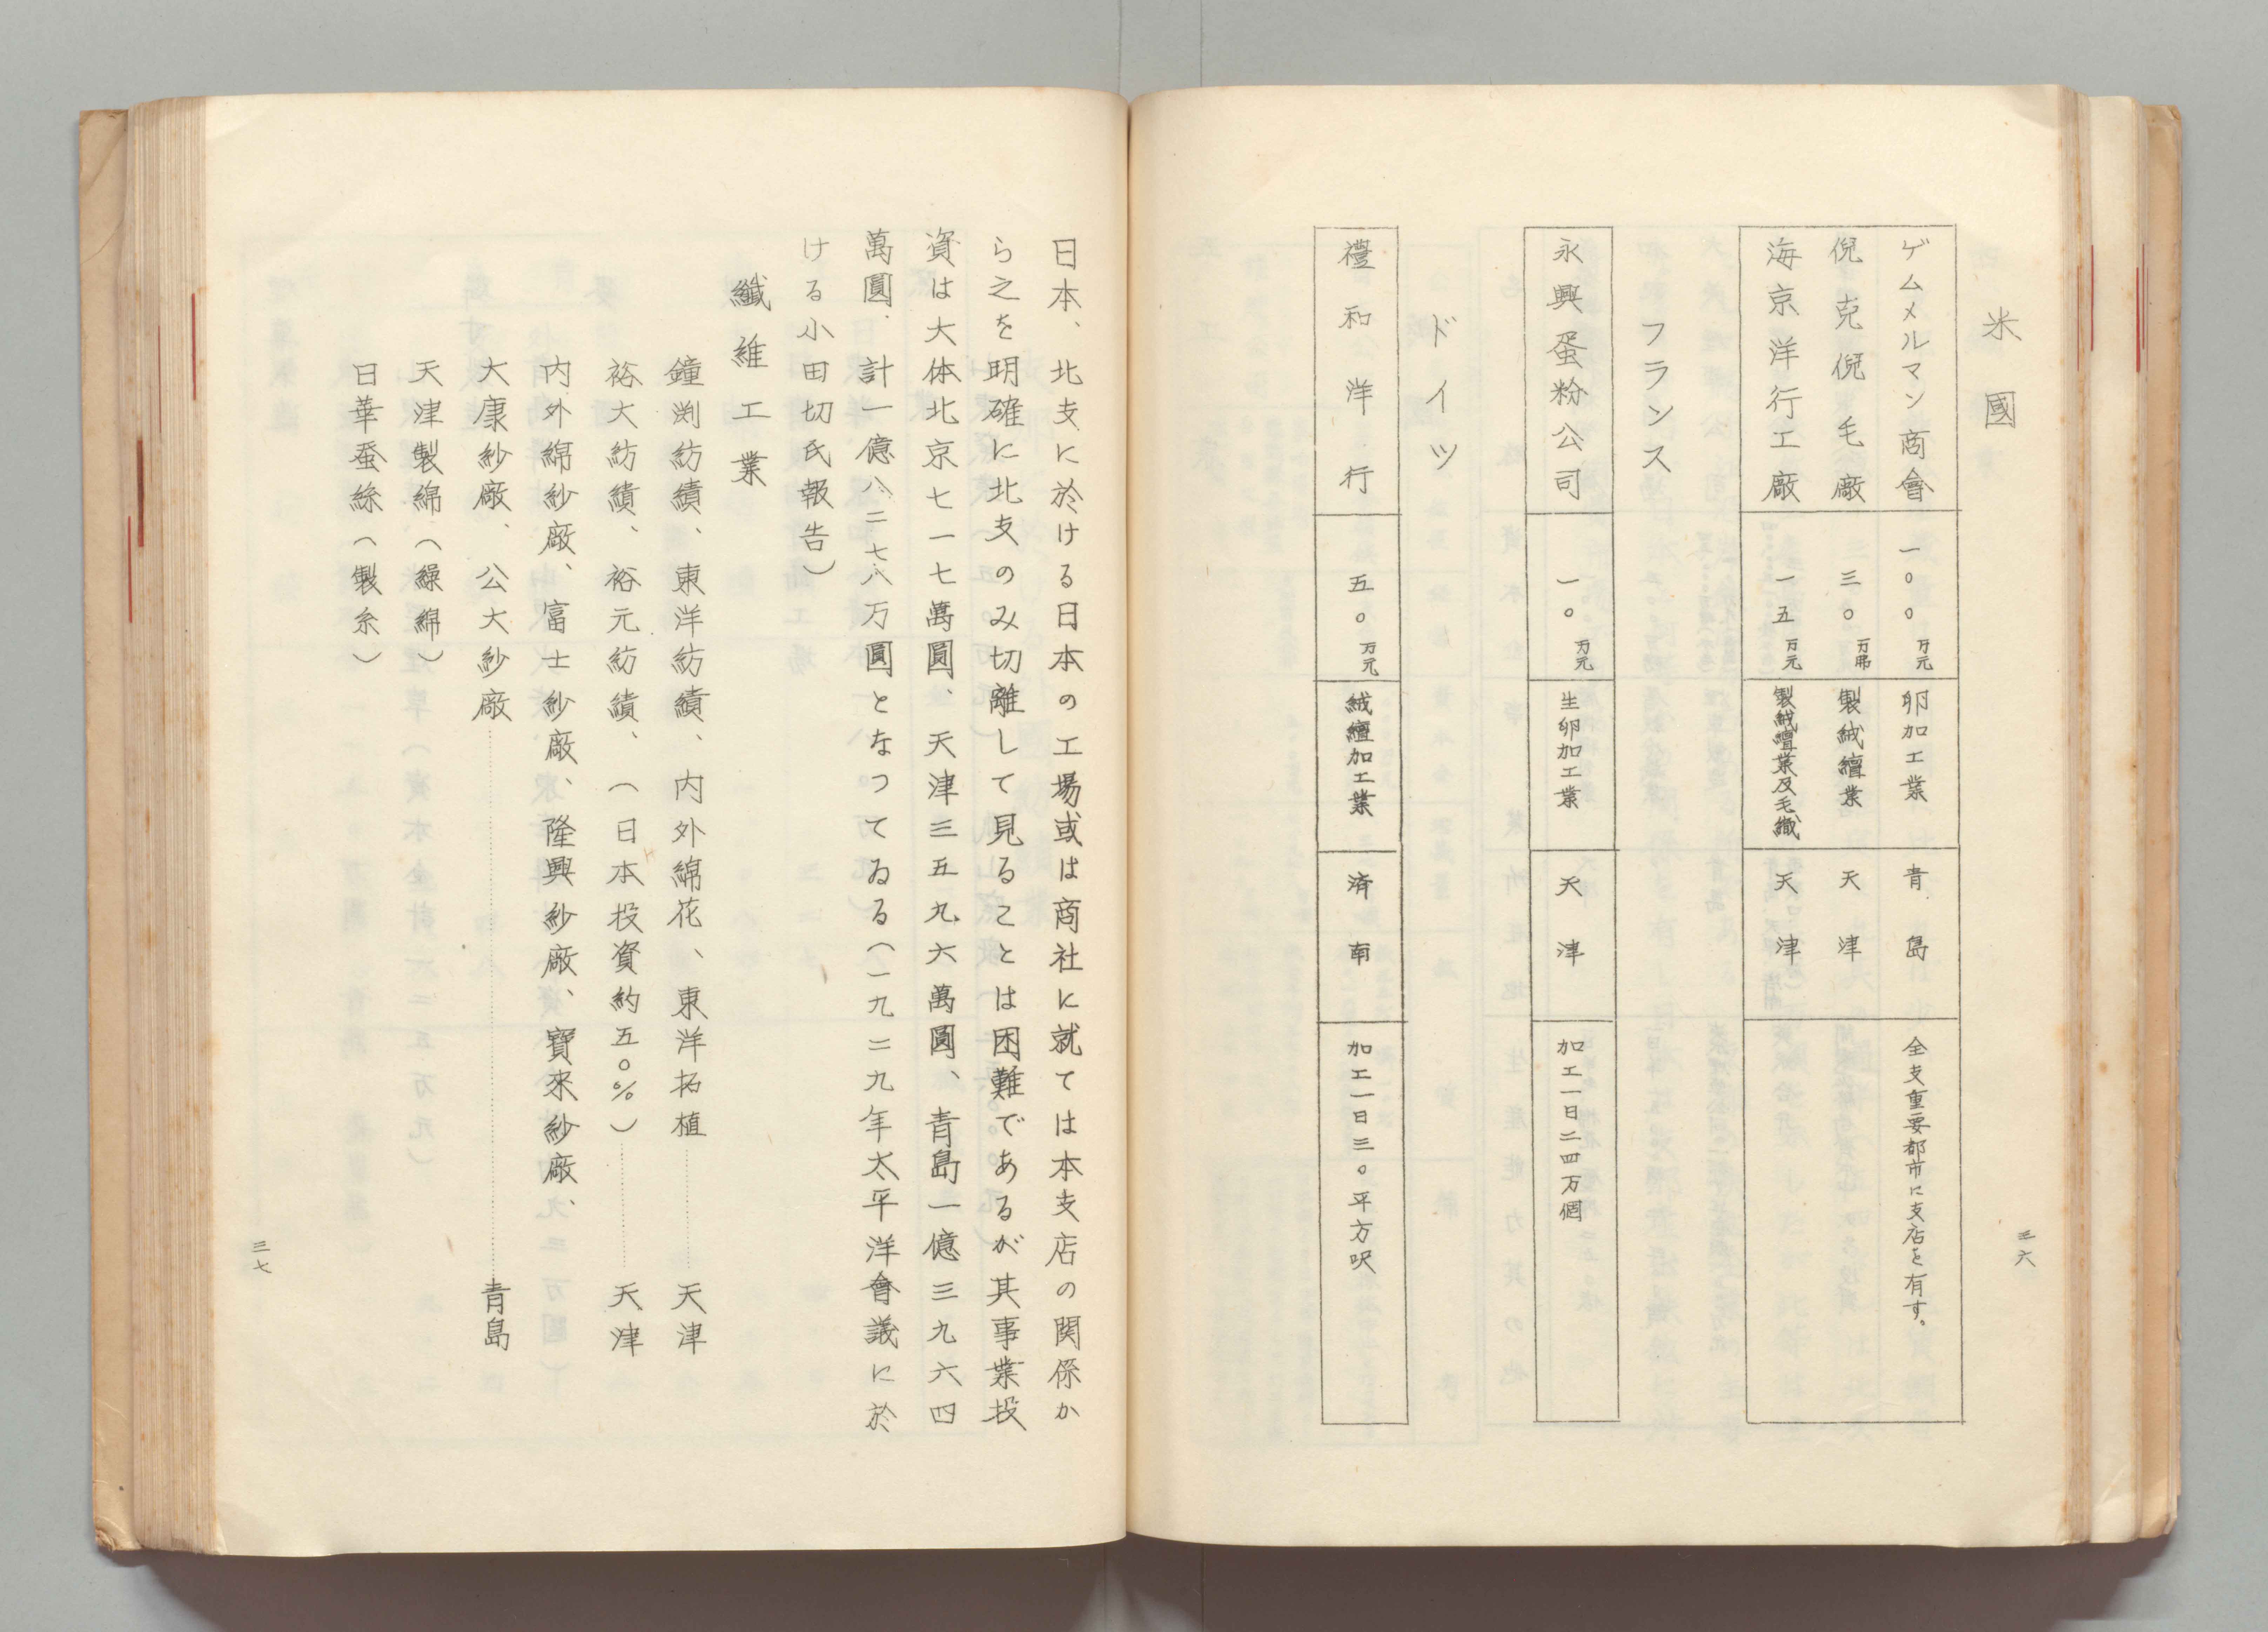 米國
ゲムメルマン商會 一〇〇万元 卵加工業 青島 全支重要都市に支店を有す。
倪克倪毛廠 三〇万弗 製絨氊業 天津
海京洋行工廠 一五万元 製絨氊業及毛織 天津
フランス
永興蛋粉公司 一〇万元 生卵加工業 天津 加工一日二四万個
ドイツ
禮和洋行 五〇万元 絨氊加工業 済南 加工一日三〇平方呎
三六
日本、北支に於ける日本の工場或は商社に就ては本支店の関係か
ら之を明確に北支のみ切離して見ることは困難であるが其事業投
資は大体北京七一七萬圓、天津三五九六萬圓、青島一億三九六四
萬圓、計一億八二七八万圓となつてゐる（一九二九年太平洋會議に於
ける小田切氏報告）
纖維工業
鐘渕紡績、東洋紡績、内外綿花、東洋拓植………天津
裕大紡績、裕元紡績、（日本投資約五〇％）………天津
内外綿紗廠、富士紗廠、隆興紗廠、寶来紗廠、
大康紗廠、公大紗廠………青島
天津製綿（繰綿）
日華蚕絲（製糸）
三七